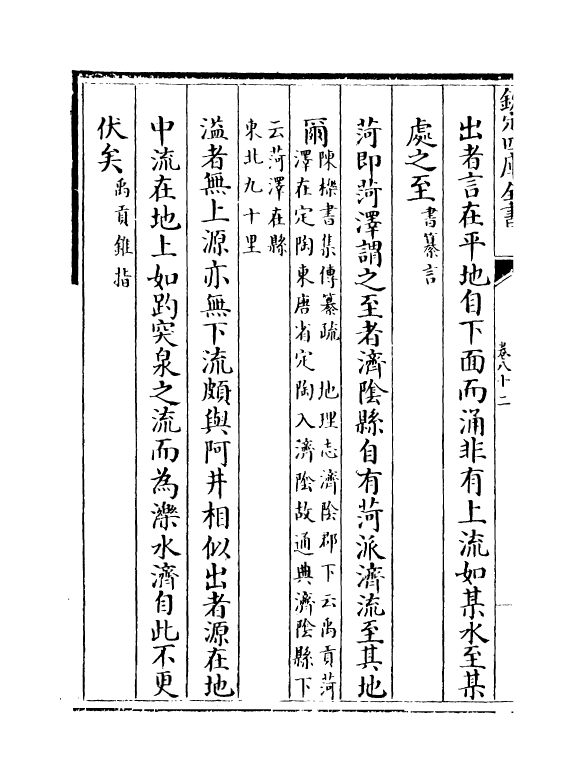 欽定四庫全書
卷八十二
出者言在平地自下面而涌非有上流如某水至某
處之至書纂言
菏即菏澤謂之至者濟陰縣自有菏派濟流至其地
爾陳櫟書集傳纂疏 地理志濟陰郡下云禹貢菏
澤在定陶東唐省定陶入濟陰故通典濟陰縣下
云菏澤在縣
東北九十里
溢者無上源亦無下流頗與阿井相似出者源在地
中流在地上如趵突泉之流而為濼水濟自此不更
伏矣禹貢錐指